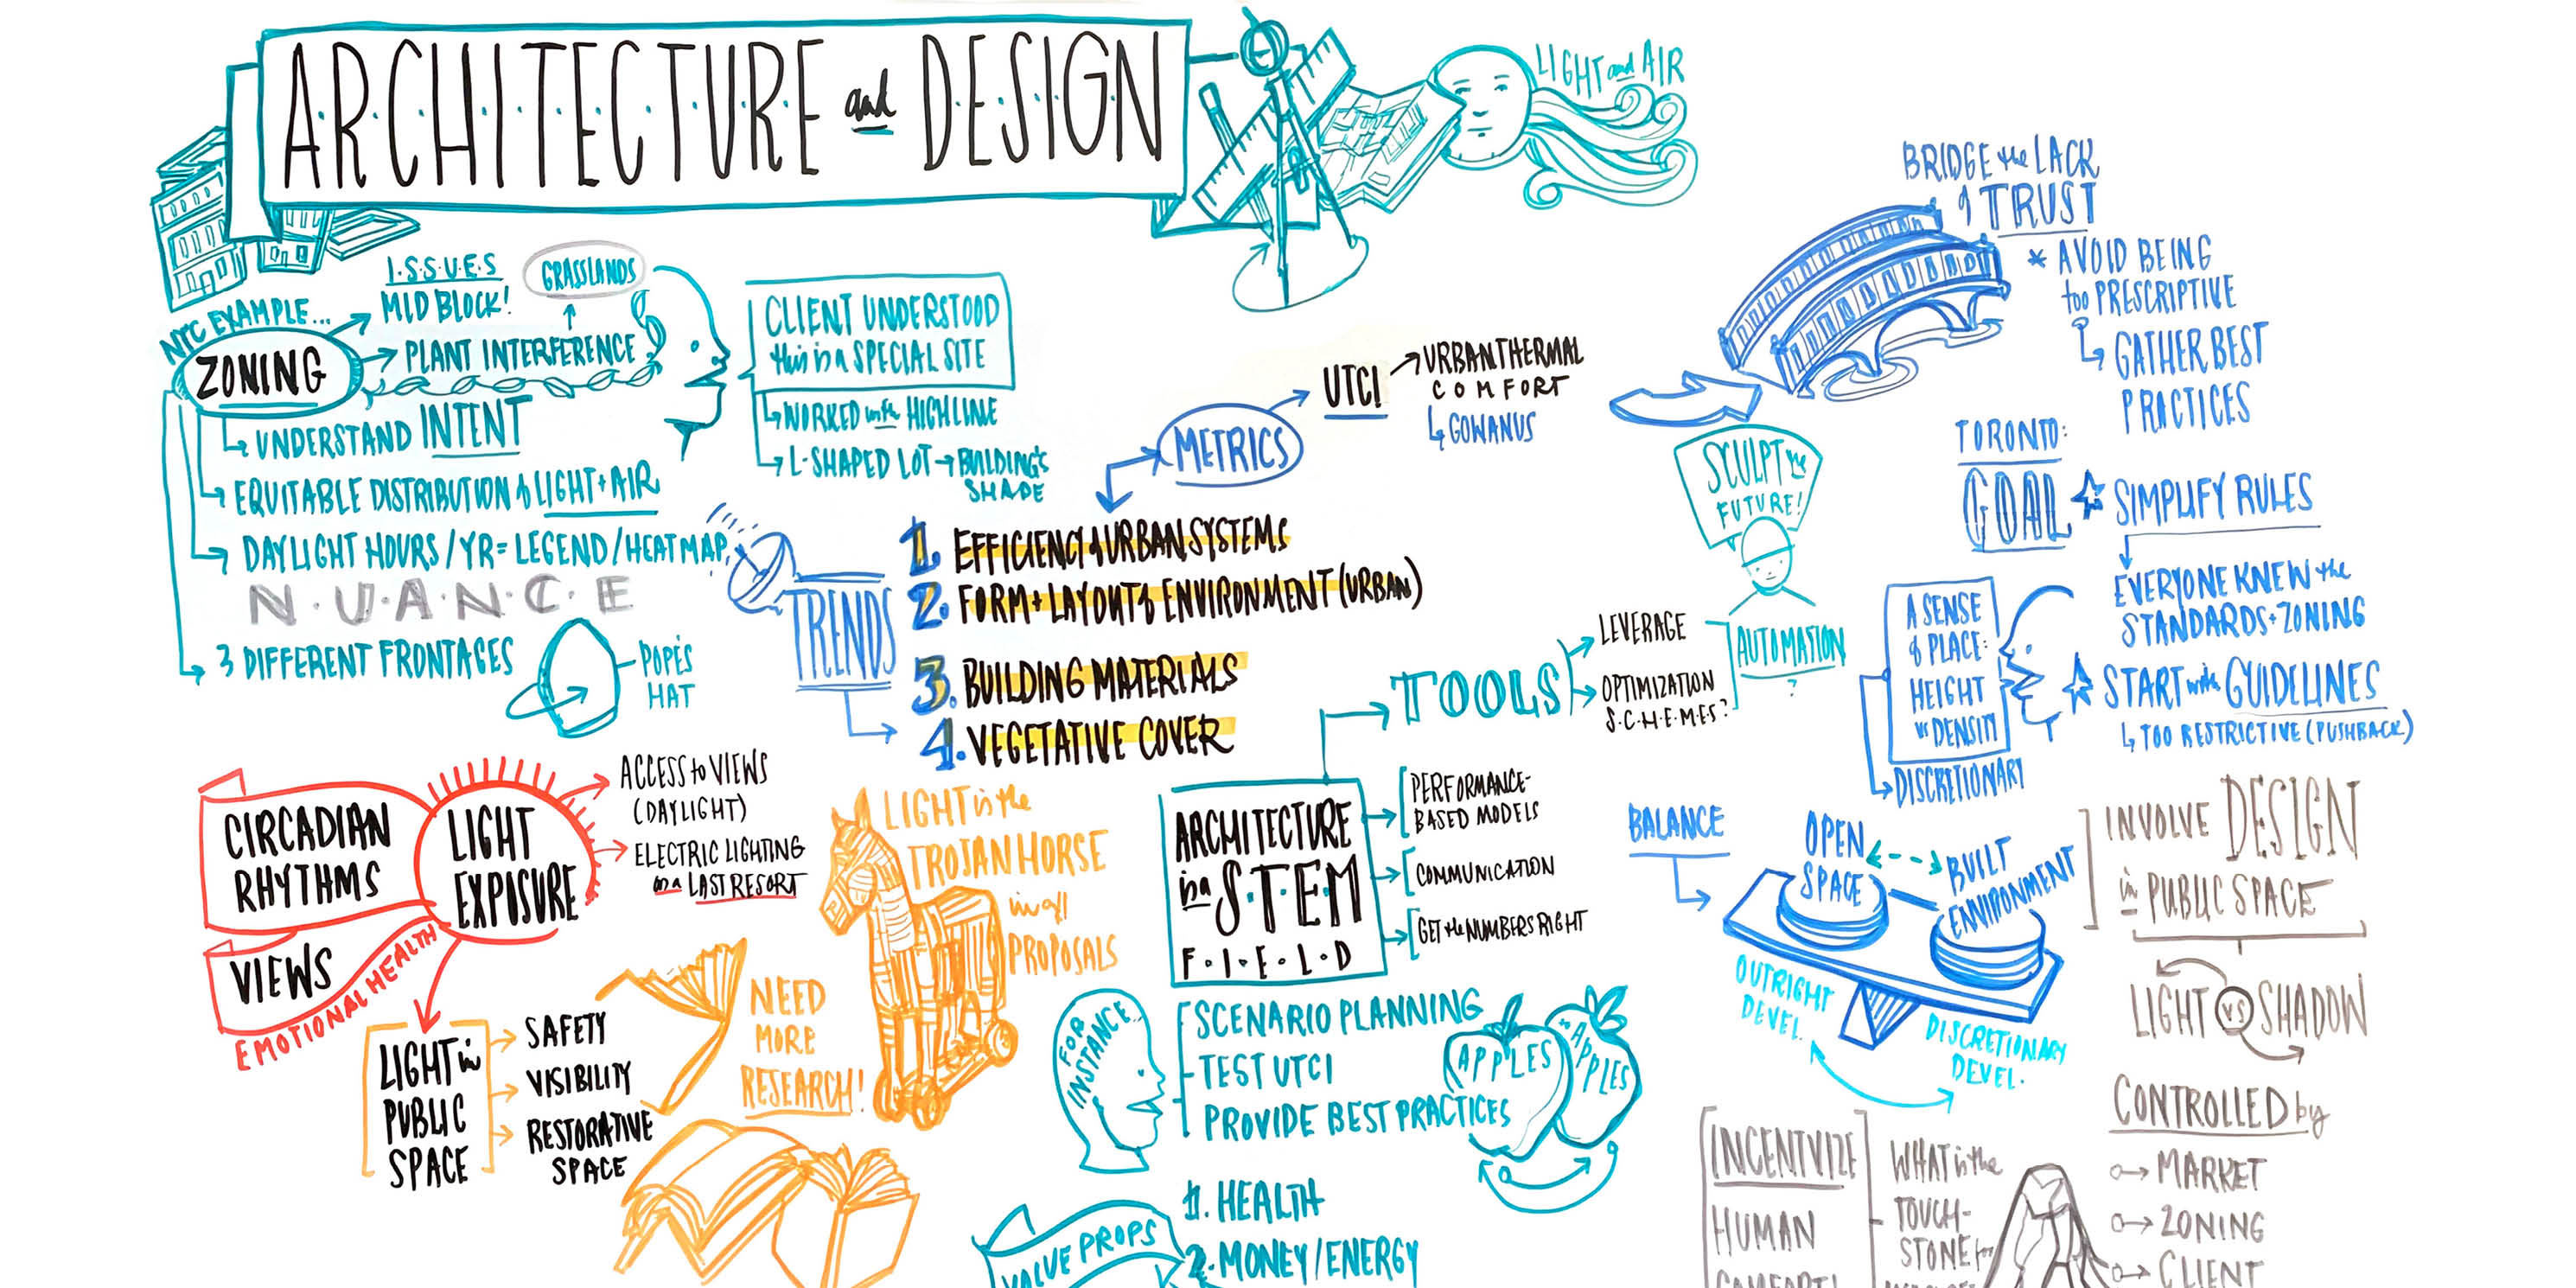 ARCHITECTURE and DESIGN
LIGHT and AIR
NYC EXAMPLE...
ZONING
ISSUES
MID BLOCK!
GRASSLANDS
PLANT INTERFERENCE
UNDERSTAND INTENT
EQUITABLE DISTRIBUTION of LIGHT + AIR
DAYLIGHT HOURS / YR = LEGEND / HEAT MAP
N.U.A.N.C.E
3 DIFFERENT FRONTAGES
POPE'S
HAT
CLIENT UNDERSTOOD
this is a SPECIAL SITE
WORKED with HIGHLINE
L-SHAPED LOT → BUILDING'S
SHADE
METRICS
UTCI
URBAN THERMAL
COMFORT
GOWANUS
TRENDS
1. EFFICIENCY of URBAN SYSTEMS
2. FORM + LAYOUT of ENVIRONMENT (URBAN)
3. BUILDING MATERIALS
4. VEGETATIVE COVER
CIRCADIAN
RHYTHMS
VIEWS
EMOTIONAL HEALTH
LIGHT
EXPOSURE
ACCESS to VIEWS
(DAYLIGHT)
ELECTRIC LIGHTING
as a LAST RESORT
LIGHT in
PUBLIC
SPACE
SAFETY
VISIBILITY
RESTORATIVE
SPACE
NEED
MORE
RESEARCH!
LIGHT is the
TROJAN HORSE
in all
PROPOSALS
ARCHITECTURE
is a S.T.E.M
F.I.E.L.D
PERFORMANCE-
BASED MODELS
COMMUNICATION
GET the NUMBERS RIGHT
TOOLS
LEVERAGE
OPTIMIZATION
S.C.H.E.M.E.S?
AUTOMATION
?
SCULPT the
FUTURE!
FOR
INSTANCE...
SCENARIO PLANNING
TEST UTCI
PROVIDE BEST PRACTICES
APPLES
to APPLES
VALUE PROPS
1. HEALTH
2. MONEY/ENERGY
BRIDGE the LACK
of TRUST
* AVOID BEING
too PRESCRIPTIVE
GATHER BEST
PRACTICES
TORONTO:
GOAL
SIMPLIFY RULES
EVERYONE KNEW the
STANDARDS + ZONING
START with GUIDELINES
TOO RESTRICTIVE (PUSHBACK)
A SENSE
of PLACE:
HEIGHT
vs DENSITY
DISCRETIONARY
BALANCE
OPEN
SPACE
BUILT
ENVIRONMENT
OUTRIGHT
DEVEL.
DISCRETIONARY
DEVEL.
INVOLVE DESIGN
in PUBLIC SPACE
LIGHT VS SHADOW
CONTROLLED by
MARKET
ZONING
CLIENT
INCENTVIZE
HUMAN
COMFORT!
WHAT is the
TOUCH-
STONE for